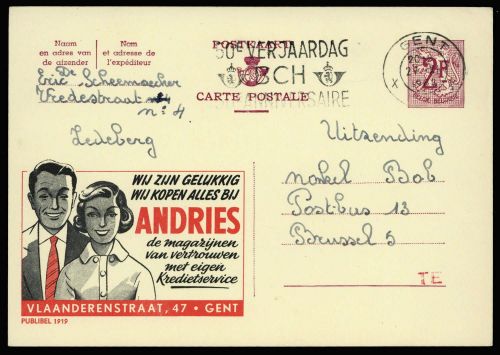 Naam
en adres van
de afzender
Nom
et adresse de
l'expéditeur
POSTKAART
CARTE POSTALE
50e VERJAARDAG
CH
ANNIVERSAIRE
GENT
X
2F
BELGIE-BELGIQUE
Eric De Scheemaecker
Vredestraat
n: 4
Ledeberg
Uitzending
nonkel Bob
Postbus 13
Brussel 5
TE
WIJ ZIJN GELUKKIG
WIJ KOPEN ALLES BIJ
ANDRIES
de magazijnen
van vertrouwen
met eigen
Kredietservice
VLAANDERENSTRAAT, 47 • GENT
PUBLIBEL 1919